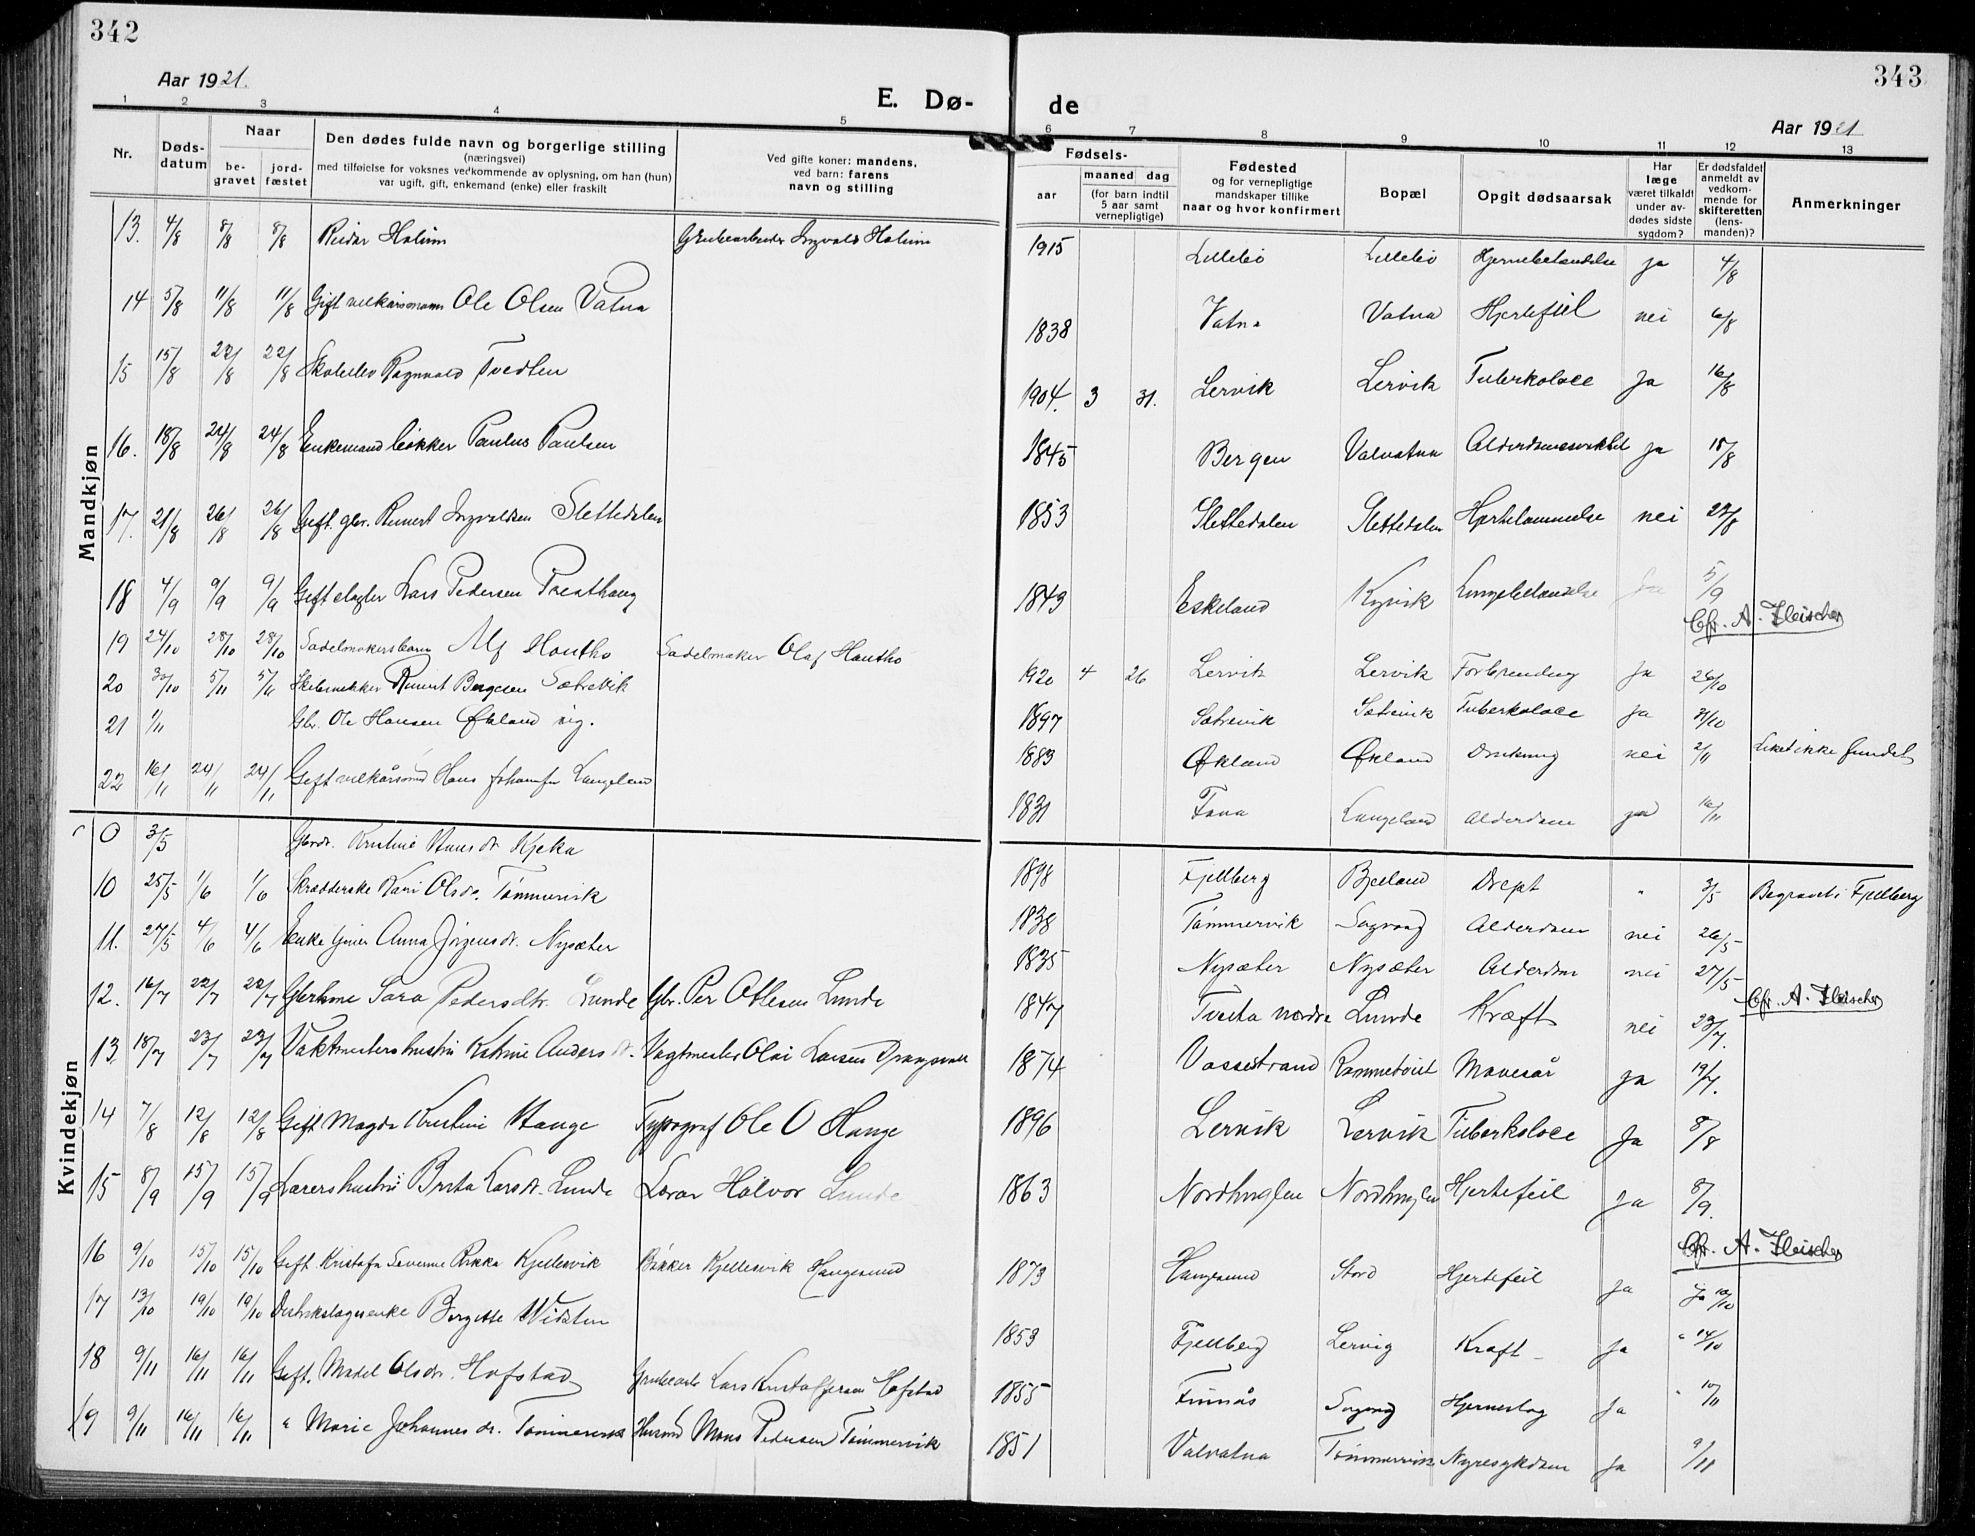 342
343
Aar 1921.
E. Dø-
de
Aar 1921
1 2 3 4 5
6 7 8 9 10 11 12 13
Nr.
Døds-
datum
Naar
be-
gravet
jord-
fæstet
Den dødes fulde navn og borgerlige stilling
(næringsvei)
med tilføielse for voksnes vedkommende av oplysning, om han (hun)
var ugift, gift, enkemand (enke) eller fraskilt
Ved gifte koner: mandens,
ved barn: farens
navn og stilling
Fødsels-
aar
maaned dag
(for barn indtil
5 aar samt
vernepligtige)
Fødested
og for vernepligtige
mandskaper tillike
naar og hvor konfirmert
Bopæl
Opgit dødsaarsak
Har
læge
været tilkaldt
under av-
dødes sidste
sygdom?
Er dødsfaldet
anmeldt av
vedkom-
mende for
skifteretten
(lens-
manden)?
Anmerkninger
Mandkjøn
13. 4/8 8/8 8/8 Reidar Holum Grubearbeider Ingvald Holum 1915 Lillebø Lillebø Hjernebetændelse ja 4/8
14 5/8 11/8 11/8 Gift vilkårsmann Ole Olsen Vatna 1838 Vatna Vatna Hjertefeil nei 6/8
15 15/8 22/8 22/8 Skoleelev Ragnvald Tvedten 1904. 3 31. Lervik Lervik Tuberkolose Ja 16/8
16. 18/8 24/8 24/8 Enkemand bøkker Paulus Paulsen 1845 Bergen Valvatna Alderdomssvakhet ja 18/8
17. 21/8 26/8 26/8 Gift. gbr. Reinert Ingvaldsen Slettedalen 1853 Slettedalen Slettedalen Hjertelammelse nei 22/8
18 4/9 9/9 9/9 Gift Lars Pedersen Presthaug 1843 Eskeland Kyvik Lungebetændelse Ja 5/9
Cfr. A. Fleischer
19 24/10 28/10 28/10 Sadelmakersbarn Alf Hautho Sadelmaker Olaf Hautho 1920 4 26 Lervik Lervik Forbrending Ja 26/10
20 30/10 5/11 5/11 Reinert Bergesen Sætrevik 1897 Sætrevik Sætrevik Tuberkolose ja 31/10
21 1/11 Gbr. Ole Hansen Økland ug. 1883 Økland Økland Drukning nei 2/11 Liket ikke fundet
22 16/11 24/11 24/11 Gift vilkårsmd Hans Johannes Langeland 1831 Fana Langeland Alderdom ja 16/11
Kvindekjøn
0 3/5 Gbrdr. Kristine Hansdr Kjeka 1898 Fjellberg Bjelland Drept " 3/5 Begravet i Fjellberg
10 25/5 1/6 1/6 Skredderske Kari Olsdr. Tømmervik 1838 Tømmervik Sagvaag Alderdom nei 26/5
11. 27/5 4/6 4/6 Enke Anna Jørgensdr. Nysæter 1835 Nysæter Nysæter Alderdom nei 27/5
Cfr. A. Fleischer
12. 16/7 22/7 22/7 Gbrkone Sara Pedersdtr. Lunde Gbr. Per Ottesen Lunde 1847 Tveita nordre Lunde Kræft nei 23/7.
13. 18/7 23/7 23/7 Vaktmestershustru Katrine Andersdr. Vagtmester Olai Larsen 1874 Vossestrand Rommetveit Mavesår ja 19/7.
14 7/8 12/8 12/8 Gift Magda Kristine Hauge Typograf Ole O Hauge 1896 Lervik Lervik Tuberkolose Ja 8/8
15 8/9 15/9 15/9 Lærershustru Brita Larsdr. Lunde Lærar Halvor Lunde 1863 Nordhuglen Nordhuglen Hjertefeil Ja 8/9.
Cfr. A. Fleischer
16 9/10 15/10 15/10 Gift Kristofa Severine Rikka Kjellesvik Bøkker Kjellesvik Haugesund 1873 Haugesund Stord Hjertefeil Ja Ja 10/10
17 13/10 19/10 19/10 Distriktslægeenke Bergitte Widsten 1853 Fjellberg Lervig Kræft - Ja " 14/10
18 9/11 16/11 16/11 Gift. Madel Olsdr. Hofstad Grubearb Lars Kristoffersen Hofstad 1855 Finnås Sagvag Hjerneslag Ja " 10/11
19 9/11 16/11 16/11 " Marie Johannesdr. Tømmervik Husmd Mons Pedersen Tømmervik 1851 Valvatna Tømmervik Nyresykdom Ja 9/11